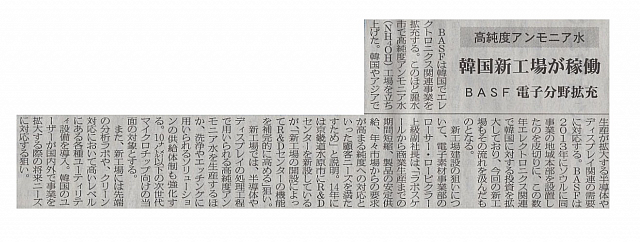 高純度アンモニア水
韓国新工場が稼働
BASF 電子分野拡充
BASFは韓国でエレ
クトロニクス関連事業を
拡充する。このほど麗水
市で高純度アンモニア水
(NH₄OH)工場を立ち
上げた。韓国やアジアで
生産が拡大する半導体や
ディスプレイ関連の需要
に対応する。BASFは
2013年にソウルに同
事業の地域本部を設置し
たのを皮切りに、この数
年エレクトロニクス関連
で韓国に対する投資を拡
大しており、今回の新工
場もその流れを汲んだも
のとなる。
新工場建設の狙いにつ
いて、電子素材事業部の
ローター・ローピヒラー
上級副社長は「ラボスケ
ールから商業生産までの
期間短縮、製品の安定供
給、年々市場からの要求
が高まる純度への対応と
いった顧客ニーズを満た
すため」と説明。14年に
は京畿道水原市にR&D
センタを新設している
が、新工場の開設によっ
てR&Dセンターの機能
を補完的に高める狙い。
新工場では、半導体や
ディスプレイの処理工程
で用いられる高純度アン
モニア水を生産するほ
か、洗浄やエッチングに
用いられるソリューショ
ンの供給体制も強化す
る。10ナノ以下の次世代
マイクロチップ向けの当
面の対象とする。
また、新工場には先端
の分析ラボや、クリーン
対応において高いレベル
にある各種ユーティリテ
ィ設備を導入。韓国のユ
ーザーが国内外で事業を
拡大する際の将来ニーズ
に対応する狙い。